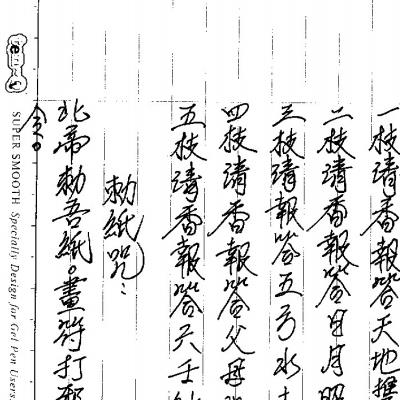 一枝清香報答天地
二枝清香報答日月
三枝清香報答五方水土
四枝清香報答父母
五枝清香報答六壬
敕紙咒:
北帝敕吾紙。畫符打邪
SUPER SMOOTH Specially Design for Gel Pen Users.